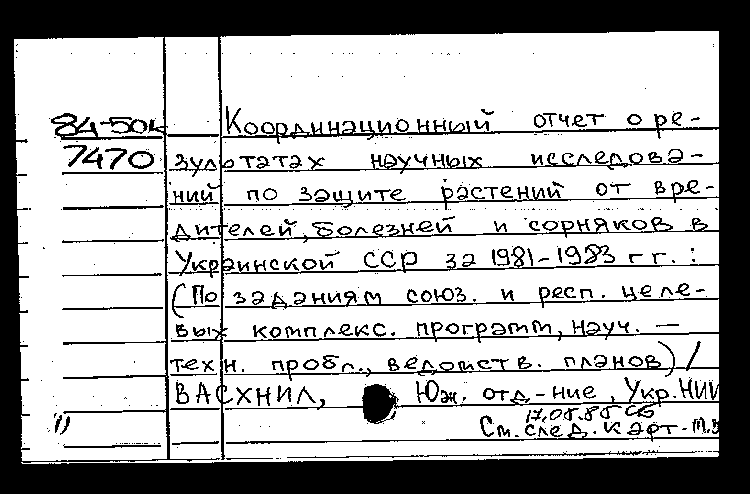 84-50к Координационный отчет о ре-
7470 зультатах научных исследова-
ний по защите растений от вре-
дителей, болезней и сорняков в
Украинской ССР за 1981-1983 гг. :
(По заданиям союз. и респ. целе-
вых комплекс. программ, науч. —
техн. пробл., ведомств. планов) /
ВАСХНИЛ, Юж. отд-ние, Укр. НИИ
17.08.85
См. след. карт.